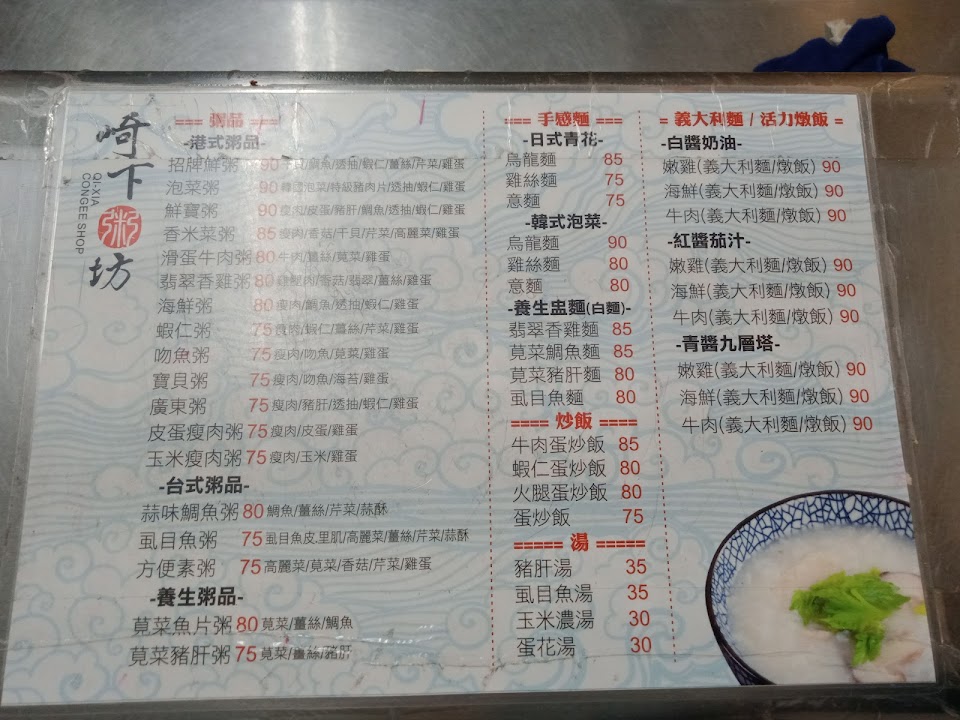 崎下粥坊
QI-XIA
CONGEE SHOP
=== 粥品 ===
-港式粥品-
招牌鮮粥 90 干貝/鯛魚/透抽/蝦仁/薑絲/芹菜/雞蛋
泡菜粥 90 韓國泡菜/特級豬肉片/透抽/蝦仁/雞蛋
鮮寶粥 90 瘦肉/皮蛋/豬肝/鯛魚/透抽/蝦仁/雞蛋
香米菜粥 85 瘦肉/香菇/干貝/芹菜/高麗菜/雞蛋
滑蛋牛肉粥 80 牛肉/薑絲/莧菜/雞蛋
翡翠香雞粥 80 雞腿肉/香菇/翡翠/薑絲/雞蛋
海鮮粥 80 瘦肉/鯛魚/透抽/蝦仁/雞蛋
蝦仁粥 75 瘦肉/蝦仁/薑絲/芹菜/雞蛋
吻魚粥 75 瘦肉/吻魚/莧菜/雞蛋
寶貝粥 75 瘦肉/吻魚/海苔/雞蛋
廣東粥 75 瘦肉/豬肝/透抽/蝦仁/雞蛋
皮蛋瘦肉粥 75 瘦肉/皮蛋/雞蛋
玉米瘦肉粥 75 瘦肉/玉米/雞蛋
-台式粥品-
蒜味鯛魚粥 80 鯛魚/薑絲/芹菜/蒜酥
虱目魚粥 75 虱目魚皮,里肌/高麗菜/薑絲/芹菜/蒜酥
方便素粥 75 高麗菜/莧菜/香菇/芹菜/雞蛋
-養生粥品-
莧菜魚片粥 80 莧菜/薑絲/鯛魚
莧菜豬肝粥 75 莧菜/薑絲/豬肝
=== 手感麵 ===
-日式青花-
烏龍麵 85
雞絲麵 75
意麵 75
-韓式泡菜-
烏龍麵 90
雞絲麵 80
意麵 80
-養生盅麵(白麵)-
翡翠香雞麵 85
莧菜鯛魚麵 85
莧菜豬肝麵 80
虱目魚麵 80
==== 炒飯 ====
牛肉蛋炒飯 85
蝦仁蛋炒飯 80
火腿蛋炒飯 80
蛋炒飯 75
===== 湯 =====
豬肝湯 35
虱目魚湯 35
玉米濃湯 30
蛋花湯 30
= 義大利麵 / 活力燉飯 =
-白醬奶油-
嫩雞(義大利麵/燉飯) 90
海鮮(義大利麵/燉飯) 90
牛肉(義大利麵/燉飯) 90
-紅醬茄汁-
嫩雞(義大利麵/燉飯) 90
海鮮(義大利麵/燉飯) 90
牛肉(義大利麵/燉飯) 90
-青醬九層塔-
嫩雞(義大利麵/燉飯) 90
海鮮(義大利麵/燉飯) 90
牛肉(義大利麵/燉飯) 90